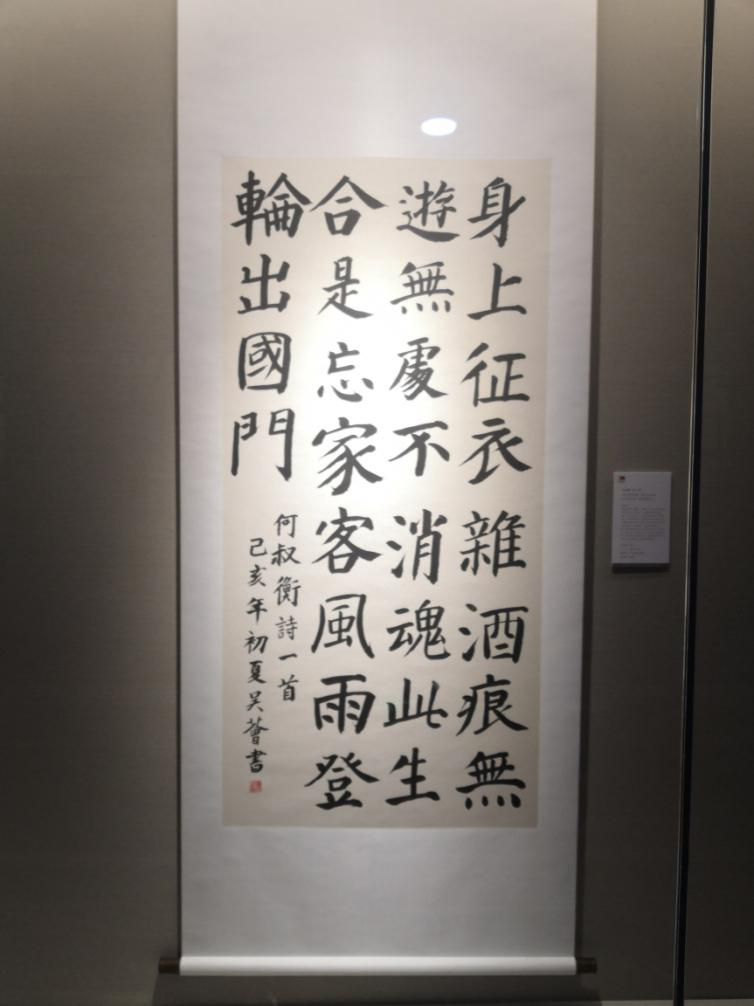 身上征衣雜酒痕無
遊無處不消魂此生
合是忘家客風雨登
輪出國門
何叔衡詩一首
己亥年初夏吴薈書